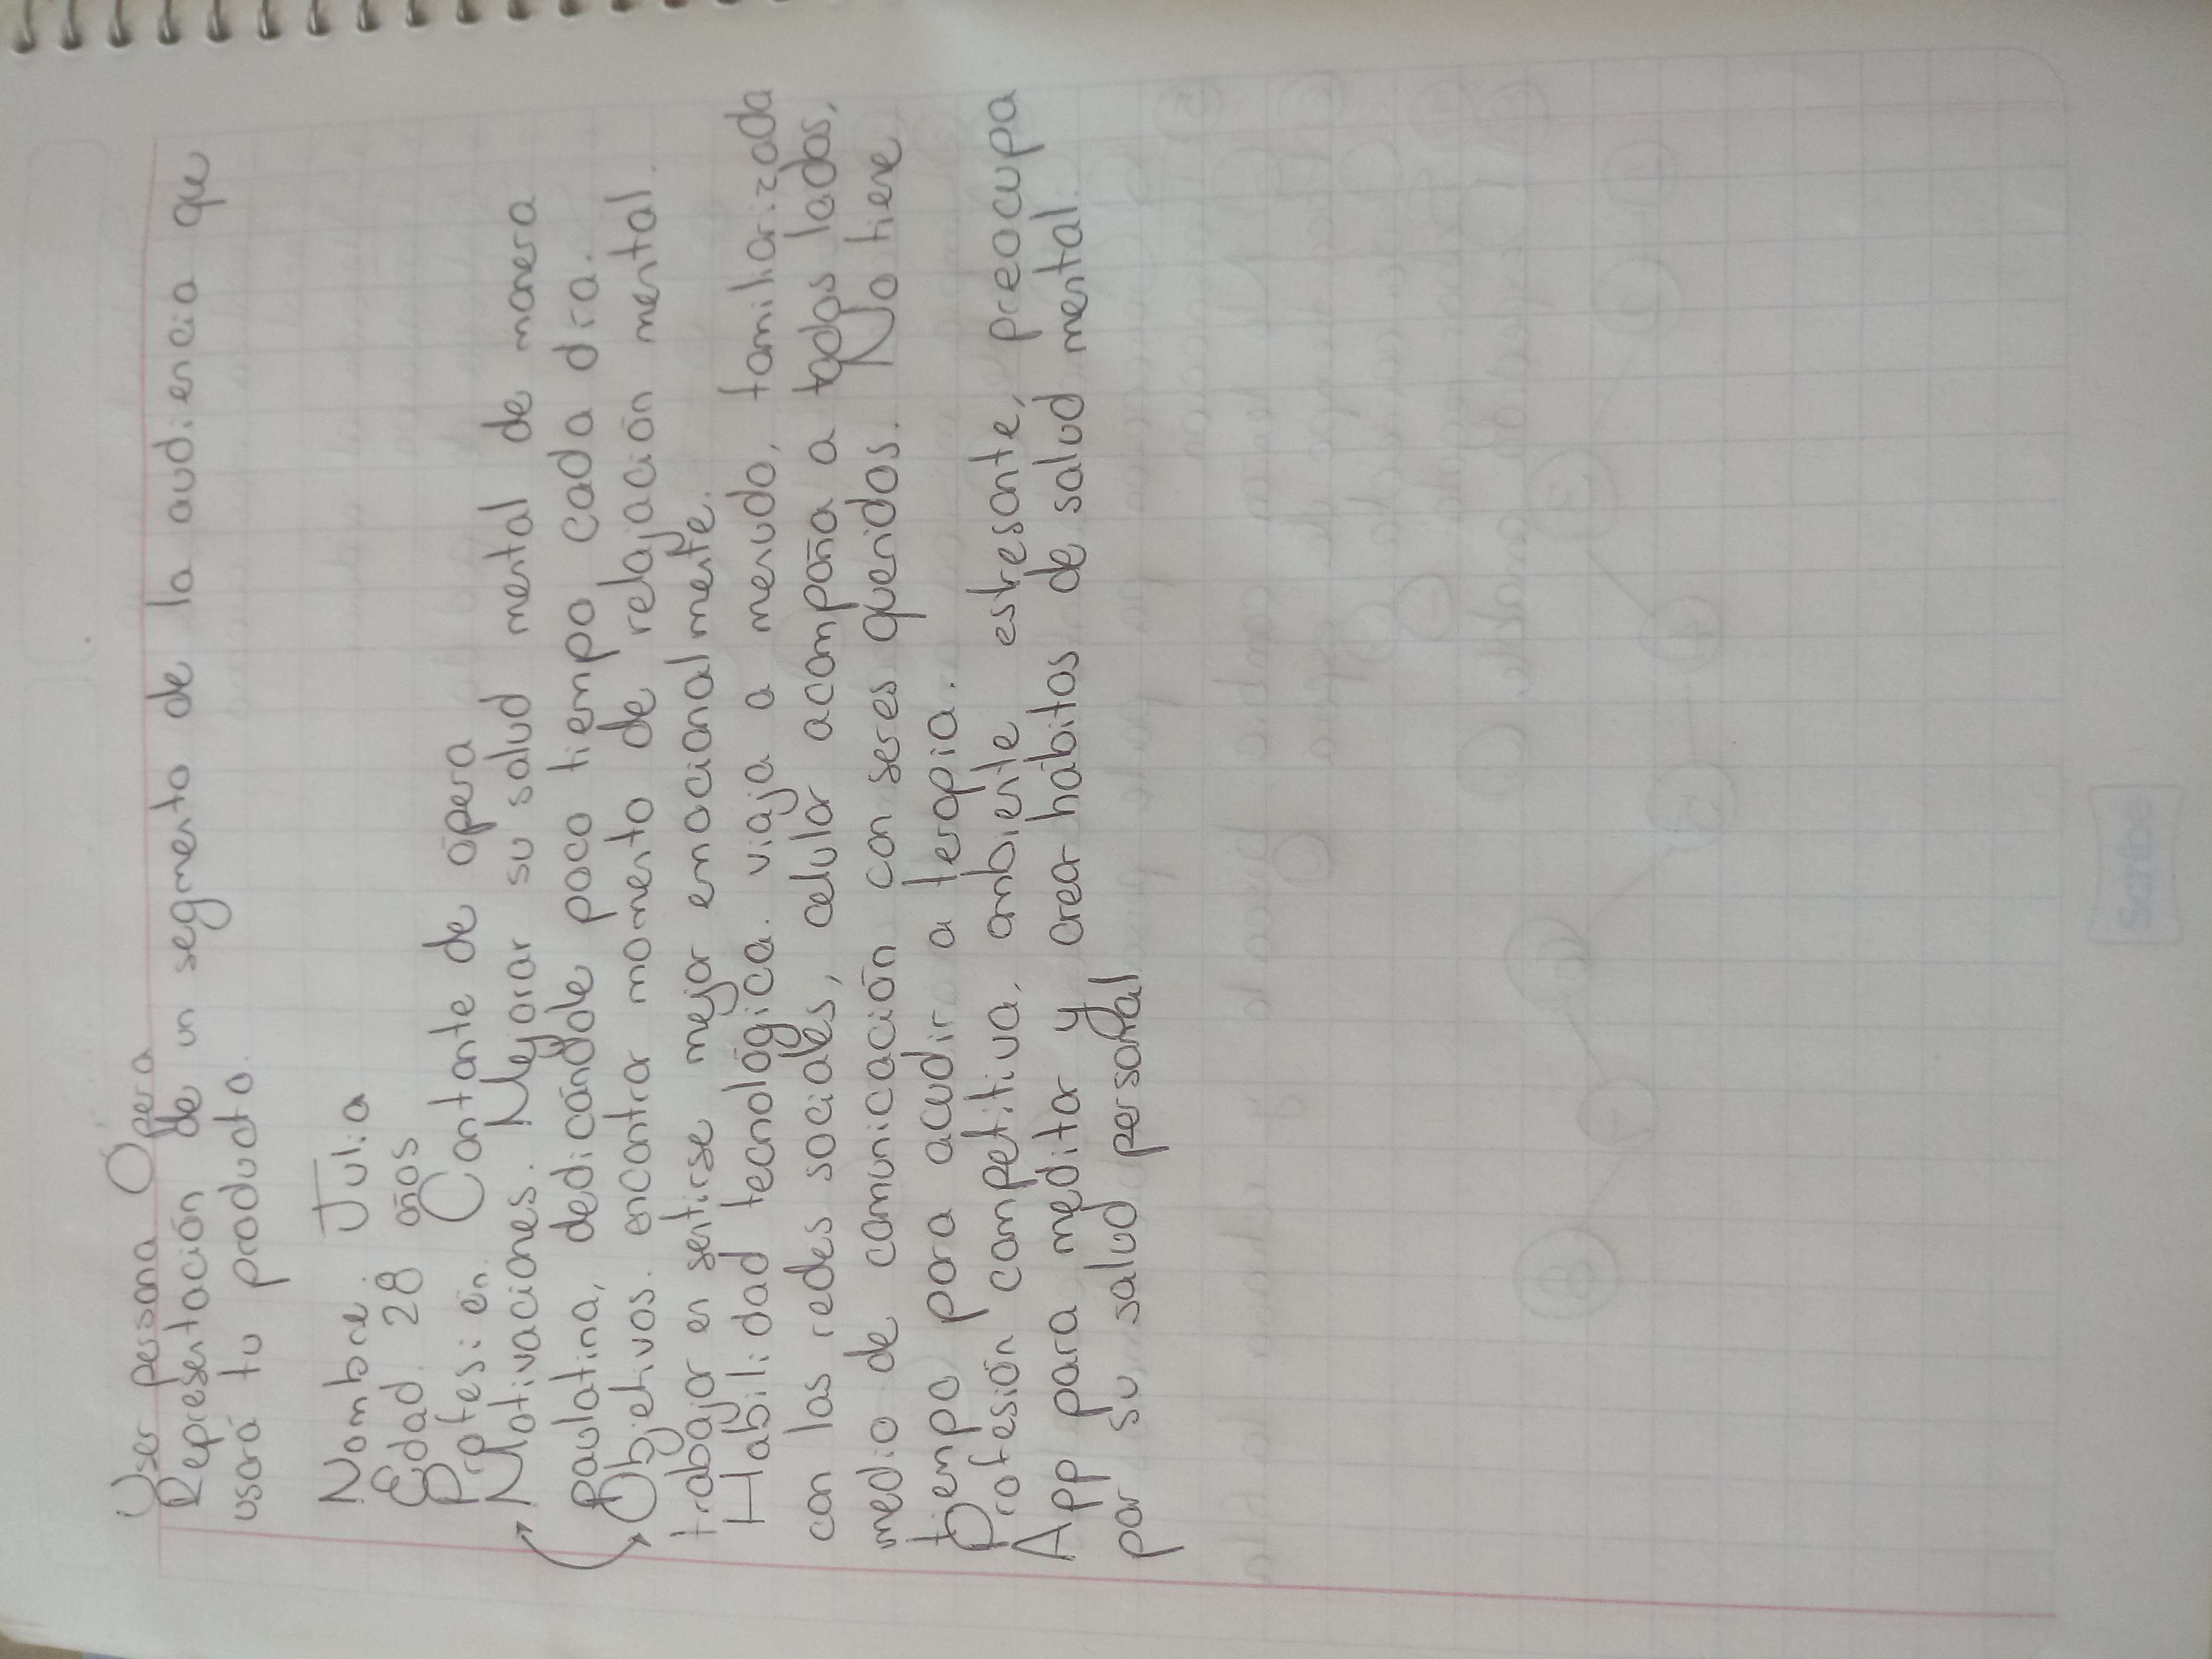 User persona Ópera
Representación de un segmento de la audiencia que
usará tu producto.
Nombre. Julia
Edad. 28 años
Profesión. Cantante de ópera
Motivaciones. Mejorar su salud mental de manera
paulatina, dedicándole poco tiempo cada día.
Objetivos. encontrar momento de relajación mental.
trabajar en sentirse mejor emocionalmente.
Habilidad tecnológica. viaja a menudo, familiarizada
con las redes sociales, celular acompaña a todos lados,
medio de comunicación con seres queridos. No tiene
tiempo para acudir a terapia.
Profesión competitiva, ambiente estresante, preocupa
App para meditar y crear hábitos de salud mental.
por su salud personal
Scribe